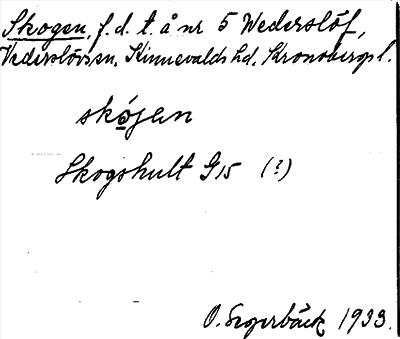 Skogen, f.d. t. å nr 5 Wederslöf,
Vederslövs sn. Kinnevalds hd. Kronobergs l.
skójan
Skogshult G15 (?)
O. Segerbäck 1933.